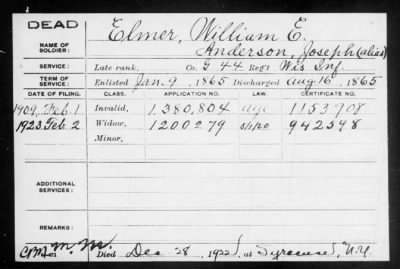 DEAD
Elmer, William E.
NAME OF SOLDIER:
Anderson, Joseph (alias)
SERVICE: Late rank, Co. G 44 Reg't Wis Inf.
TERM OF SERVICE: Enlisted Jan. 9, 1865 Discharged Aug 16, 1865
DATE OF FILING. CLASS. APPLICATION NO. LAW. CERTIFICATE NO.
1909, Feb. 1 Invalid, 1.380,804 age 1153908
1923, Feb. 2 Widow, 1200279 5/1/20 942598
Minor,
ADDITIONAL SERVICES:
REMARKS:
Died Dec 28, 1922, at Syracuse, N.Y.